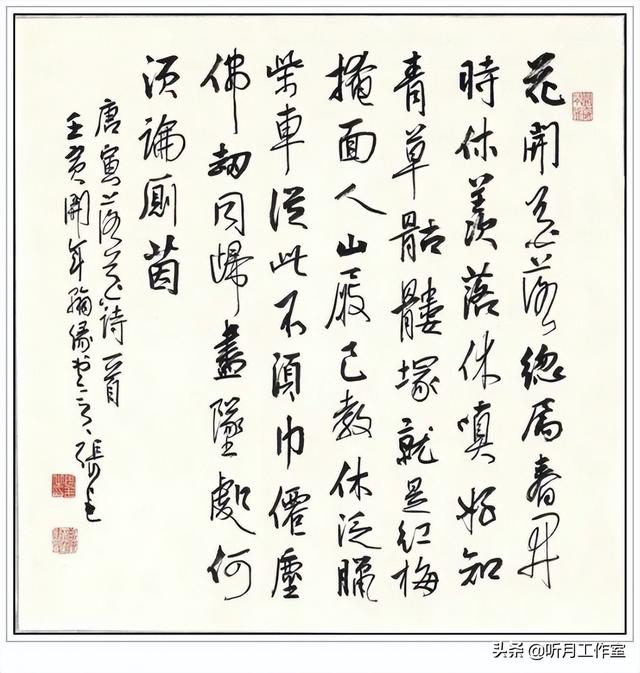 花開花落總屬春開
時休羨落休嗔好知
青草骷髏塚就是紅梅
掩面人山屐已教休泛臘
柴車從此不須巾僊塵
佛劫同歸盡墜處何
須論廁茵
唐寅落花詩一首
壬寅開年
头条 @听月工作室